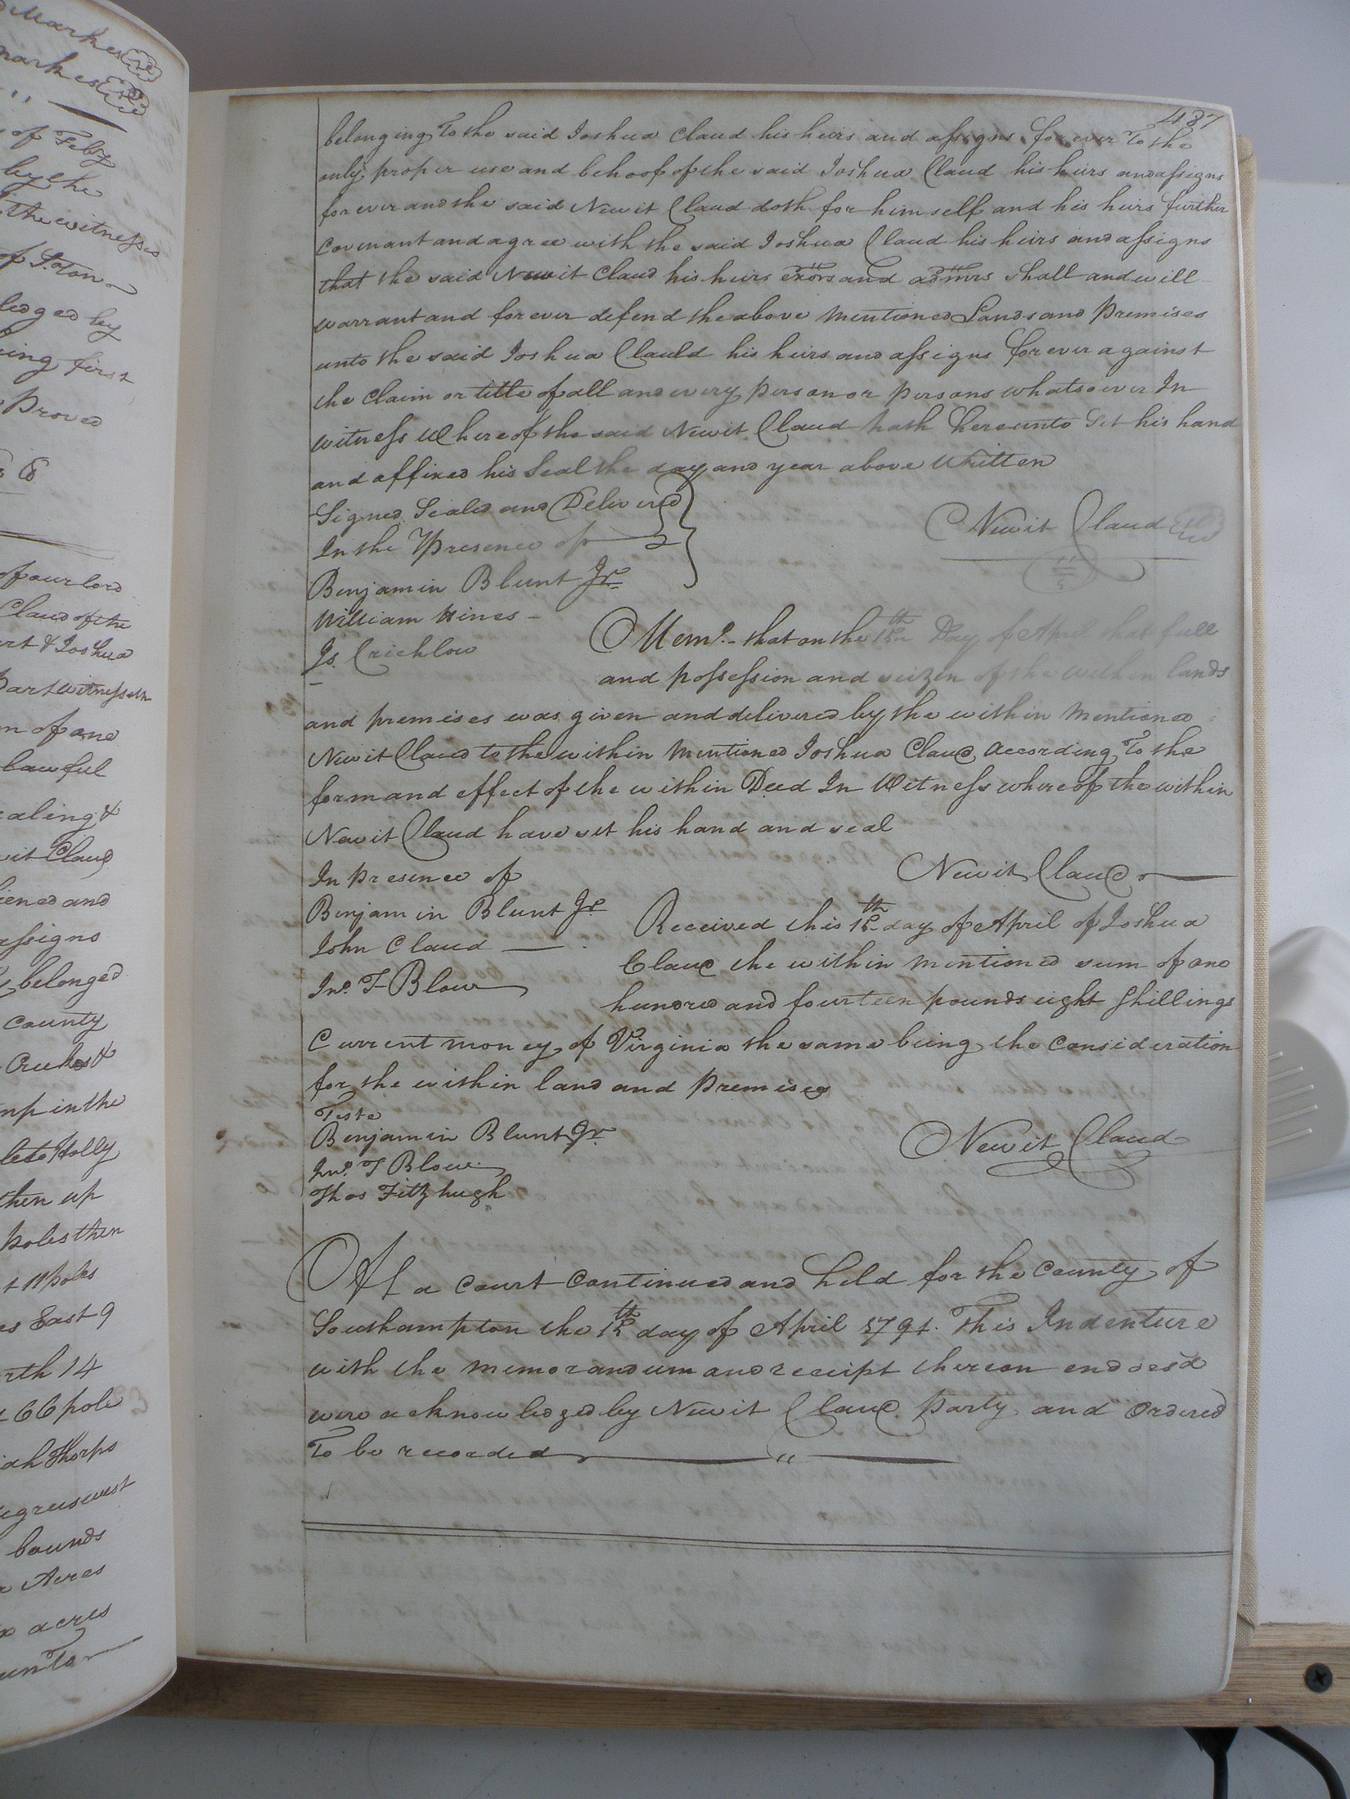 Markes
markes
of Feby
by the
the witnesses
of S.ton
ledged by
ing first
Proved
of our lord
Claud of the
& Joshua
Part witnesseth
of one
lawful
ealing &
wit Claud
ened and
assigns
belonged
County
Creekes &
in the
Holly
then up
poles then
11 poles
East 9
rth 14
66 pole
iah Thorps
egrees west
bounds
Acres
acres
unto
487
belonging To the said Joshua Claud his heirs and assigns for ever To the
only proper use and behoof of the said Joshua Claud his heirs and assigns
for ever and the said Newit Claud doth for himself and his heirs further
Covenant and agree with the said Joshua Claud his heirs and assigns
that the said Newit Claud his heirs exors and admrs shall and will
warrant and forever defend the above mentioned Lands and Premises
unto the said Joshua Clauld his heirs and assigns forever against
the Claim or title of all and every person or persons whatsoever In
witness Whereof the said Newit Claud hath hereunto Set his hand
and affixed his Seal the day and year above Written
Signed Sealed and Delivered
In the Presence of
Newit Claud
Benjamin Blunt Jr.
William Hines
Js. Crichlow
Memo. that on the 12th Day of April that full
and possession and seizen of the within lands
and premises was given and delivered by the within mentioned
Newit Claud to the within mentioned Joshua Claud According To the
form and effect of the within Deed In Witness whereof the within
Newit Claud have set his hand and seal
In Presence of
Newit Claud
Benjamin Blunt Jr
John Claud
Jno. T Blow
Received this 12th day of April of Joshua
Claud the within mentioned sum of one
hundred and fourteen pounds eight Shillings
Current money of Virginia the same being the Consideration
for the within land and Premises
Teste
Benjamin Blunt Jr.
Jno. T Blow
Thos Fitzhugh
Newit Claud
At a Court Continued and held for the County of
Southampton the 12th day of April 1794. This Indenture
with the memorandum and receipt thereon endorsd
were acknowledged by Newit Claud Party and Ordered
To be recorded